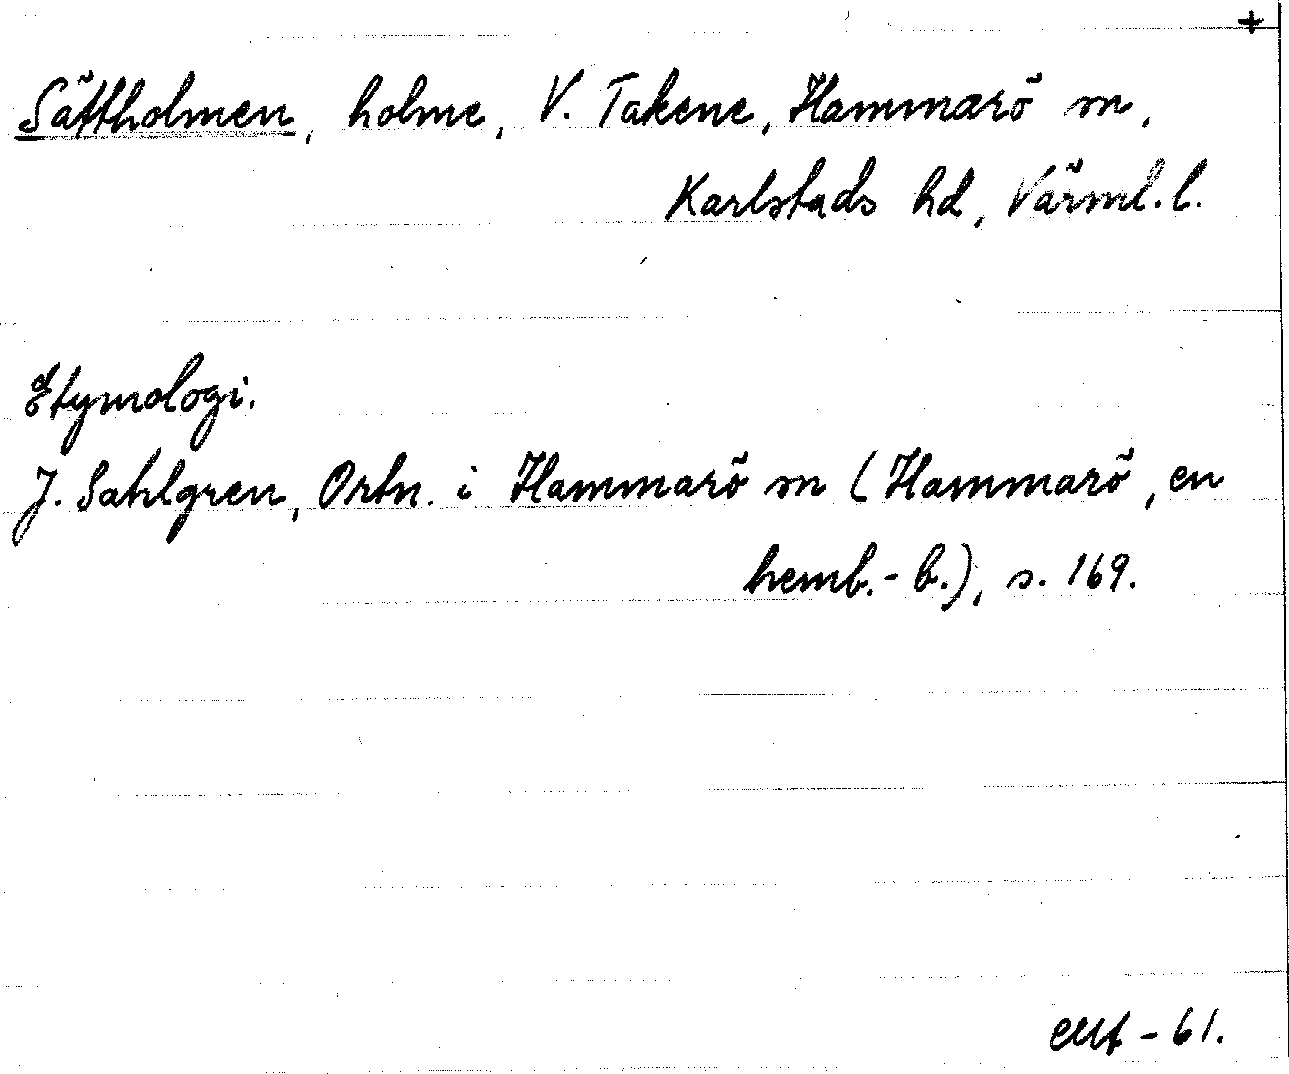 +
Sättholmen, holme, V. Takene, Hammarö sn,
Karlstads hd, Värml. l.
Etymologi.
J. Sahlgren, Ortn. i Hammarö sn (Hammarö, en
hemb.-b.), s. 169.
- 61.